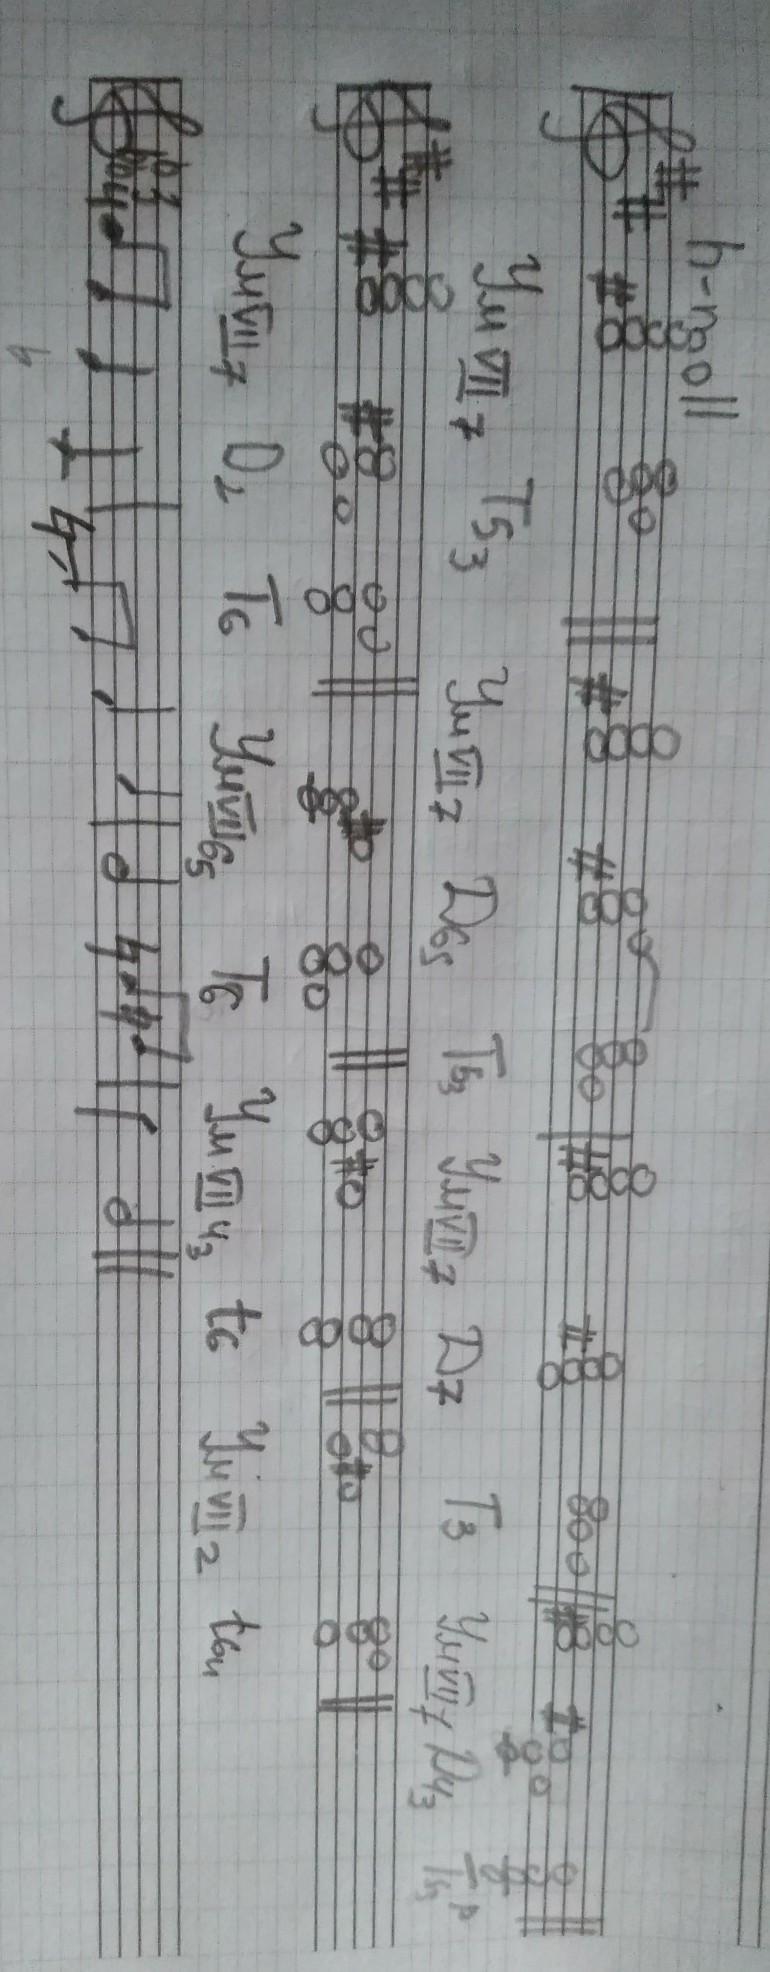 h-moll
Ум VII 7 Т53 Ум VII 7 D65 Т53 Ум VII 7 D7 Т3 Ум VII 7 D43 Т53 р
Ум VII 7 D2 Т6 Ум VII 65 Т6 Ум VII 43 t6 Ум VII 2 t64
3
4